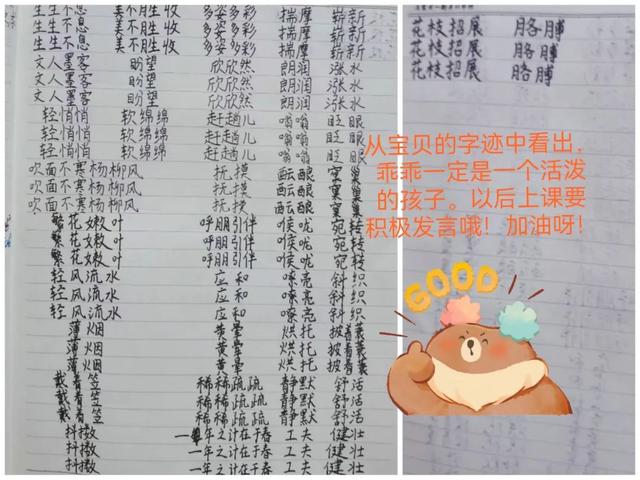 生生不息 美不胜收 多姿多彩 揣摩 崭新
生生不息 美不胜收 多姿多彩 揣摩 崭新
生生不息 美不胜收 多姿多彩 揣摩 崭新
文人墨客 盼望 欣欣然 朗润 涨水
文人墨客 盼望 欣欣然 朗润 涨水
文人墨客 盼望 欣欣然 朗润 涨水
轻悄悄 软绵绵 赶趟儿 嗡嗡 眨眼
轻悄悄 软绵绵 赶趟儿 嗡嗡 眨眼
轻悄悄 软绵绵 赶趟儿 嗡嗡 眨眼
吹面不寒杨柳风 抚摸 酝酿 窠巢
吹面不寒杨柳风 抚摸 酝酿 窠巢
吹面不寒杨柳风 抚摸 酝酿 窠巢
繁花嫩叶 呼朋引伴 喉咙 宛转
繁花嫩叶 呼朋引伴 喉咙 宛转
繁花嫩叶 呼朋引伴 喉咙 宛转
轻风流水 应和 嘹亮 斜织
轻风流水 应和 嘹亮 斜织
轻风流水 应和 嘹亮 斜织
薄烟 黄晕 烘托 披着蓑
薄烟 黄晕 烘托 披着蓑
薄烟 黄晕 烘托 披着蓑
戴着笠 稀稀疏疏 静默 舒活
戴着笠 稀稀疏疏 静默 舒活
戴着笠 稀稀疏疏 静默 舒活
抖擞 一年之计在于春 工夫 健壮
抖擞 一年之计在于春 工夫 健壮
抖擞 一年之计在于春 工夫 健壮
花枝招展 胳膊
花枝招展 胳膊
花枝招展 胳膊
从宝贝的字迹中看出，
乖乖一定是一个活泼
的孩子。以后上课要
积极发言哦！加油呀！
GOOD